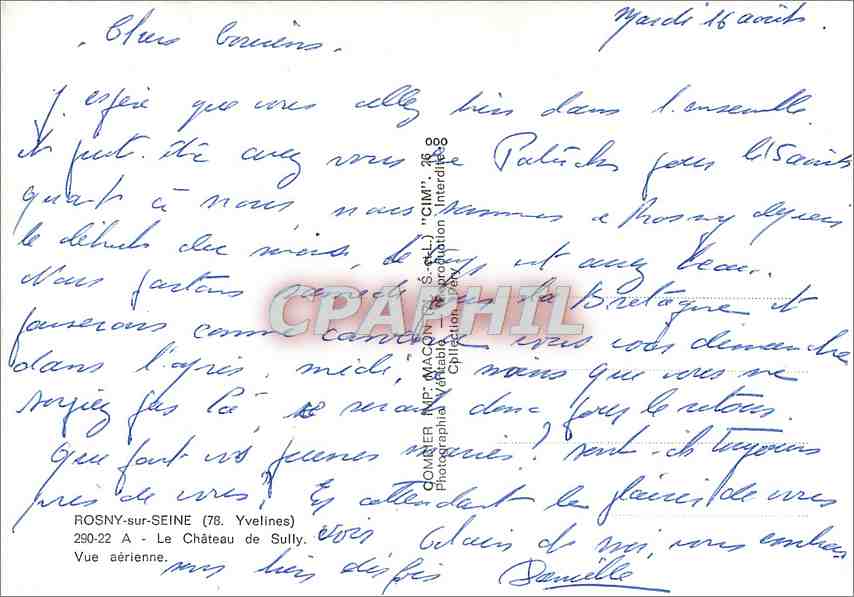 Mardi 16 août.
Chers Cousins,
J'espère que vous allez bien dans l'ensemble
et peut-être avez vous Patrick pour le 15 août
quant à nous nous sommes à Rosny depuis
le début du mois, le temps est assez beau.
Nous partons samedi pour la Bretagne et
passerons comme convenu vous voir dimanche
dans l'après midi, à moins que vous ne
soyiez pas là, ce serait donc pour le retour.
Que font vos jeunes mariés? sont-ils toujours
près de vous? En attendant le plaisir de vous
voir de moi, vous
bien des fois Danielle
ROSNY-sur-SEINE (78. Yvelines)
290-22 A - Le Château de Sully.
Vue aérienne.
COMBIER IMP. MACON (S.-et-L.) "CIM". 26 000
Photographie Véritable — Reproduction Interdite
Collection
CPAPHIL